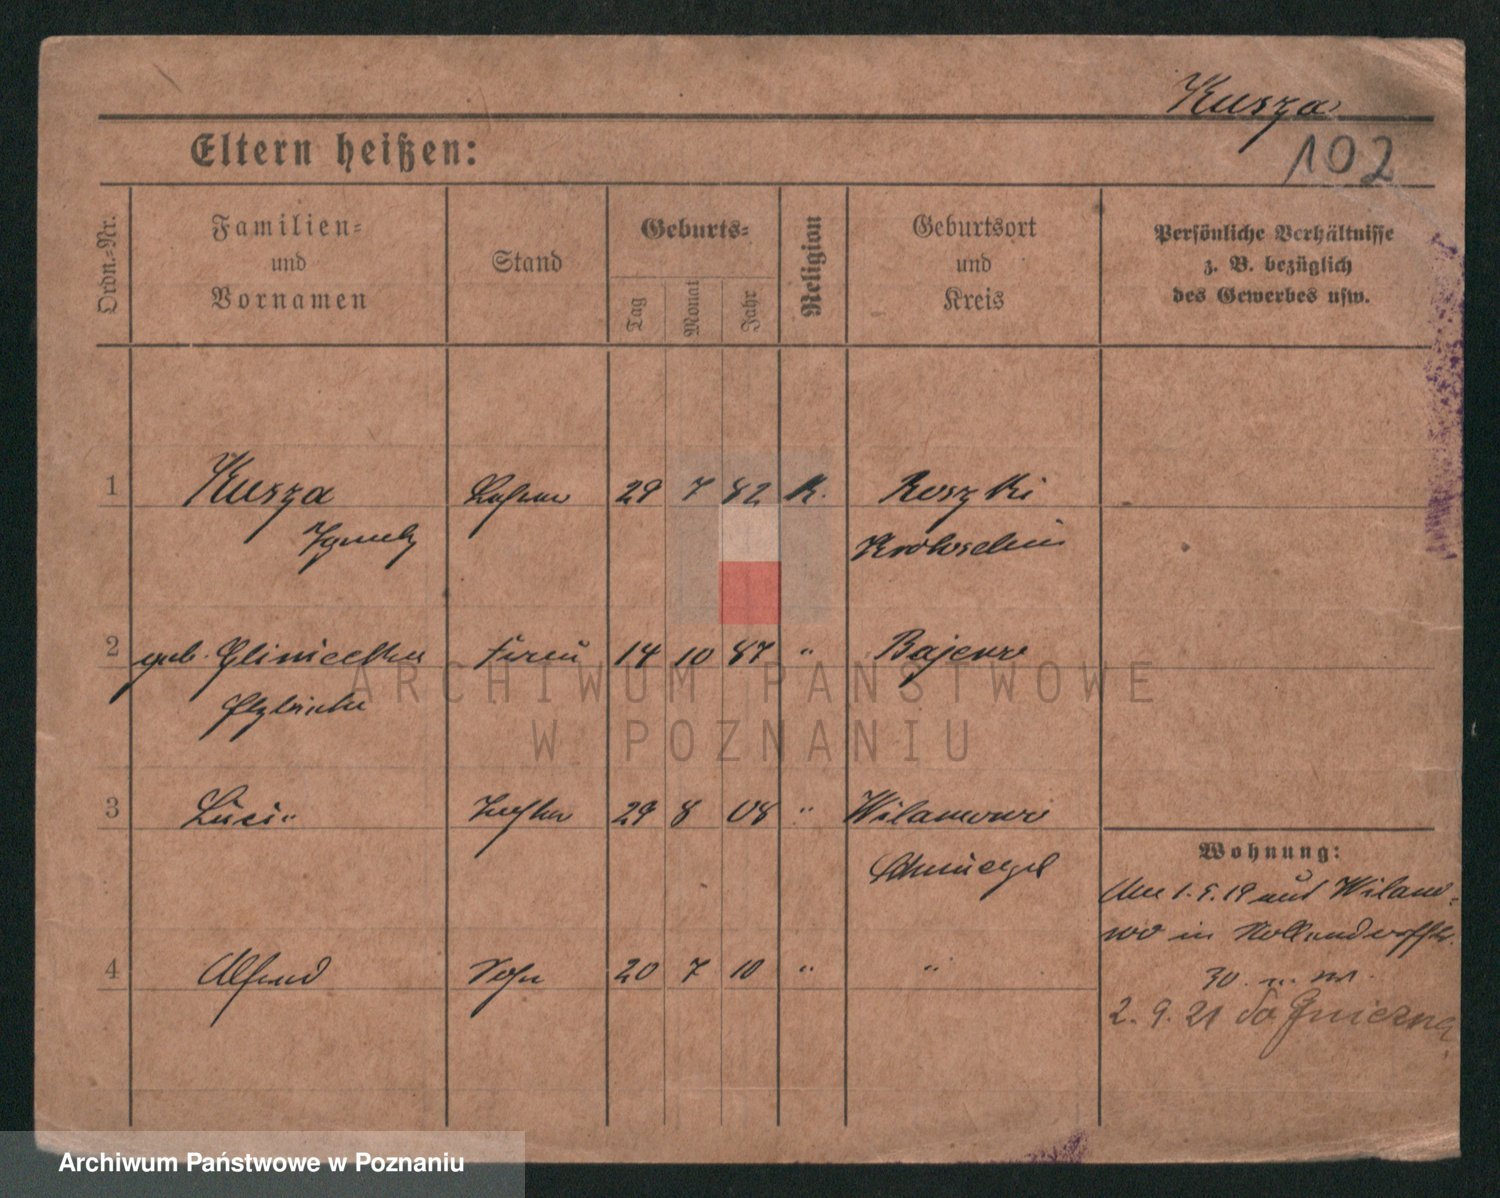 Kusza
102
Eltern heißen:
Ordn.-Nr.
Familien-
und
Vornamen
Stand
Geburts-
Tag
Monat
Jahr
Religion
Geburtsort
und
Kreis
Persönliche Verhältnisse
z. B. bezüglich
des Gewerbes usw.
1 Kusza 29 7 82 K. Roszki
Ignatz Krotoschin
2 geb. 14 10 87 " Bajewo
3 29 8 08 " Wilamowo
Schmiegel
4 Alfred Sohn 20 7 10 " "
Wohnung:
1. 9. 19 aus Wilamo-
wo in
30
2. 9. 21 do Gniezna
ARCHIWUM PAŃSTWOWE
W POZNANIU
Archiwum Państwowe w Poznaniu